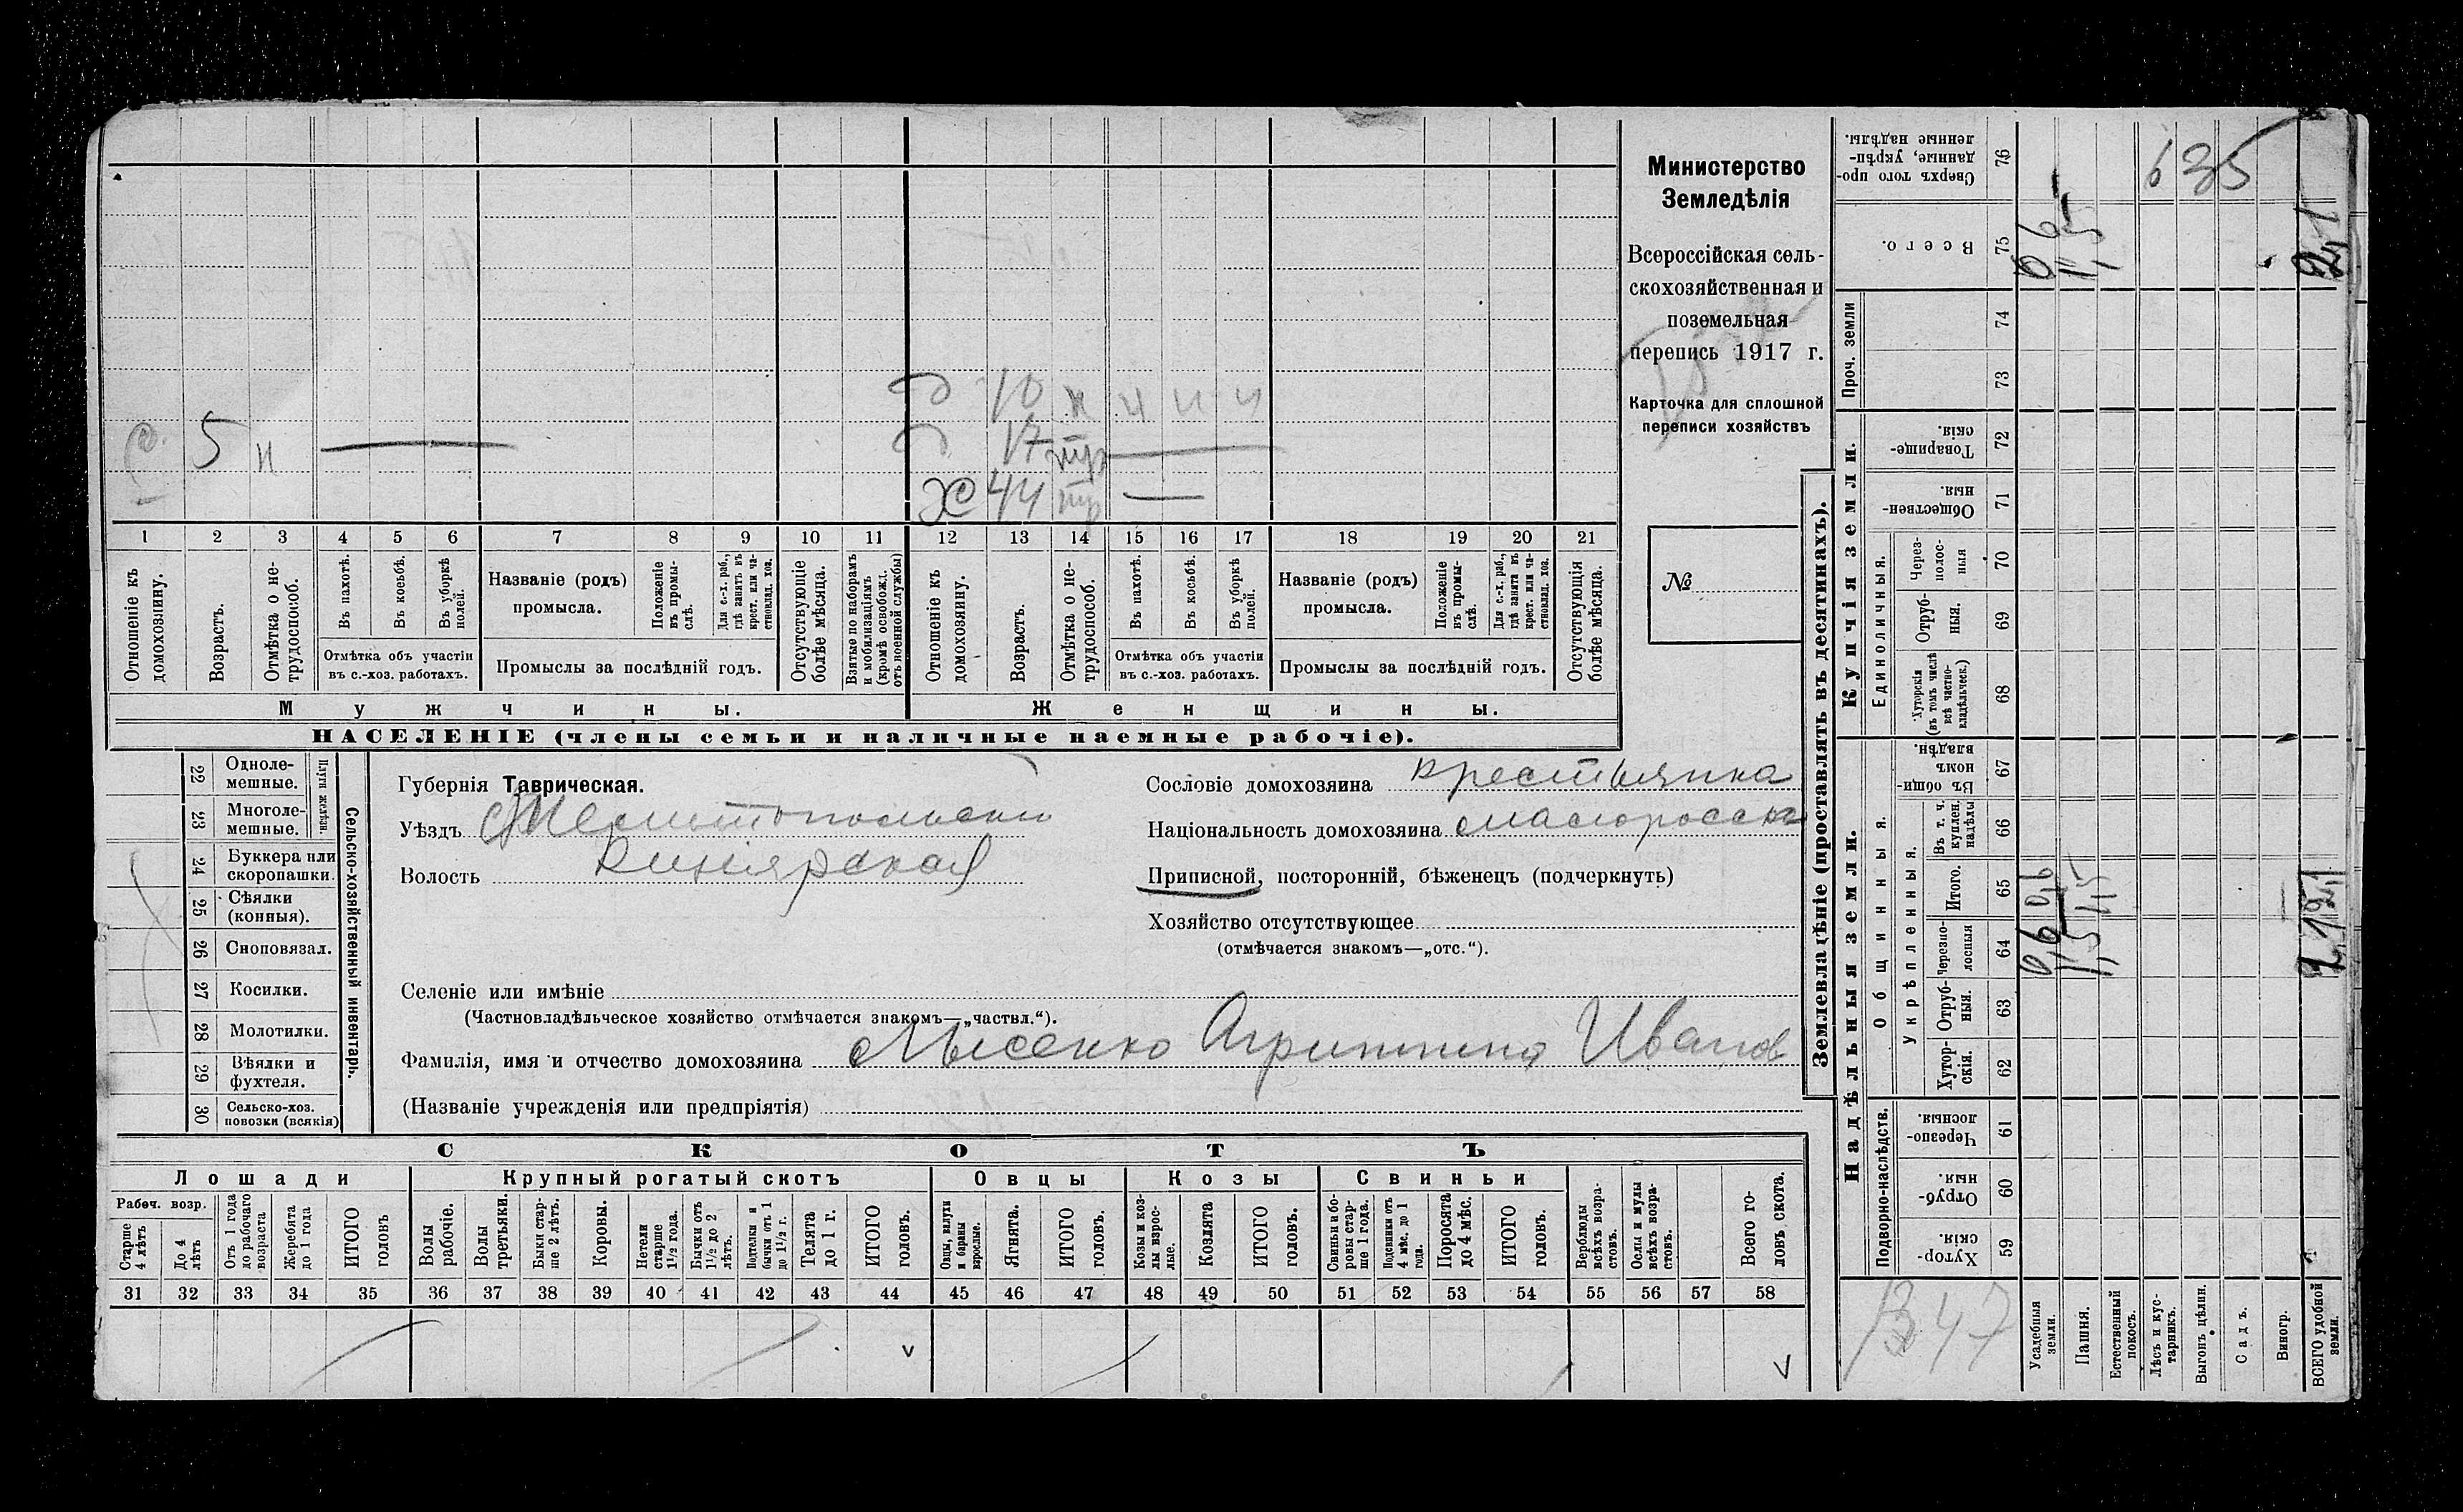 Министерство
Земледѣлія
Всероссійская сель-
скохозяйственная и
поземельная
перепись 1917 г.
Карточка для сплошной
переписи хозяйствъ
№
д 10 н н н н
с. 5 н
д 17 тр
Х 44 тр
1 2 3 4 5 6 7 8 9 10 11 12 13 14 15 16 17 18 19 20 21
Отношеніе къ домохозяину.
Возрастъ.
Отмѣтка о не-трудоспособ.
Въ пахотѣ.
Въ косьбѣ.
Въ уборкѣ полей.
Отмѣтка объ участіи
въ с.-хоз. работахъ.
Названіе (родъ)
промысла.
Положеніе въ промы-слѣ.
Для с.-х. раб., гдѣ занятъ въ крест. или ча-стновлад. хоз.
Промыслы за послѣдній годъ.
Отсутствующіе болѣе мѣсяца.
Взятые по наборамъ и мобилизаціямъ (кромѣ освобожд. отъ военной службы)
Отношеніе къ домохозяину.
Возрастъ.
Отмѣтка о не-трудоспособ.
Въ пахотѣ.
Въ косьбѣ.
Въ уборкѣ полей.
Отмѣтка объ участіи
въ с.-хоз. работахъ.
Названіе (родъ)
промысла.
Положеніе въ промы-слѣ.
Для с.-х. раб., гдѣ занята въ крест. или ча-стновлад. хоз.
Промыслы за послѣдній годъ.
Отсутствующія болѣе мѣсяца.
Мужчины. Женщины.
НАСЕЛЕНІЕ (члены семьи и наличные наемные рабочіе).
Сельско-хозяйственный инвентарь.
Плуги желѣзн.
22 Одноле-мешные.
23 Многоле-мешные.
24 Буккера или скоропашки.
25 Сѣялки (конныя).
26 Сноповязал.
27 Косилки.
28 Молотилки.
29 Вѣялки и фухтеля.
30 Сельско-хоз. повозки (всякія)
Губернія Таврическая.
Уѣздъ Мелитопольскій
Волость Кизіярская
Сословіе домохозяина крестьянка
Національность домохозяина малоросска
Приписной, посторонній, бѣженец (подчеркнуть)
Хозяйство отсутствующее
(отмѣчается знакомъ—„отс.“).
Селеніе или имѣніе
(Частновладѣльческое хозяйство отмѣчается знакомъ—„частвл.“).
Фамилія, имя и отчество домохозяина Мысенко Агриппина Иванов
(Названіе учрежденія или предпріятія)
СКОТЪ
Лошади Крупный рогатый скотъ Овцы Козы Свиньи
Рабоч. возр.
Старше 4 лѣтъ
До 4 лѣтъ
Отъ 1 года до рабочаго возраста
Жеребята до 1 года
ИТОГО головъ
Волы рабочіе.
Волы третьяки.
Быки стар-ше 2 лѣтъ.
Коровы.
Нетели старше 1½ года.
Бычки отъ 1½ до 2 лѣтъ.
Подтелки и бычки отъ 1 до 1½ г.
Телята до 1 г.
ИТОГО головъ.
Овцы, валухи и бараны взрослые.
Ягнята.
ИТОГО головъ.
Козы и коз-лы взрос-лые.
Козлята
ИТОГО головъ.
Свиньи и бо-ровы стар-ше 1 года.
Подсвинки отъ 4 мѣс. до 1 года.
Поросята до 4 мѣс.
ИТОГО головъ.
Верблюды всѣхъ возра-стовъ.
Ослы и мулы всѣхъ возра-стовъ.
Всего го-ловъ скота.
31 32 33 34 35 36 37 38 39 40 41 42 43 44 45 46 47 48 49 50 51 52 53 54 55 56 57 58
v v
Землевладѣніе (проставлять въ десятинахъ).
Надѣльныя земли.
Подворно-наслѣдств.
Хутор-скія. 59
Отруб-ныя. 60
Черезпо-лосныя. 61
Общинныя.
Укрѣпленныя.
Хутор-скія. 62
Отруб-ныя. 63
Черезпо-лосныя 64
Итого. 65
Въ т. ч. куплен. надѣлы 66
Въ общин-номъ владѣн. 67
Купчія земли.
Единоличныя.
Хуторскія (въ томъ числѣ всѣ частно-владѣльческ.) 68
Отруб-ныя. 69
Через-полос-ныя 70
Обществен-ныя 71
Товарище-скія. 72
Проч. земли
73 74
Всего. 75
Сверхъ того про-данные, укрѣп-ленные надѣлы. 76
Усадебныя земли. 0,6 0,6 0,6
Пашня. 1,5 1,5 1,5
Естественный покосъ.
Лѣсъ и кус-тарникъ.
Выгонъ цѣлин.
Садъ.
Виногр.
ВСЕГО удобной земли. 2,1 2,1 2,1
635
1347